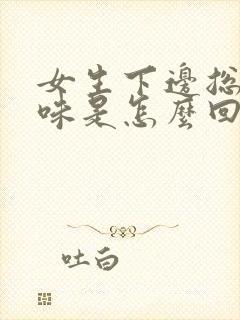 女生下邊总
味是怎麼回
吐白